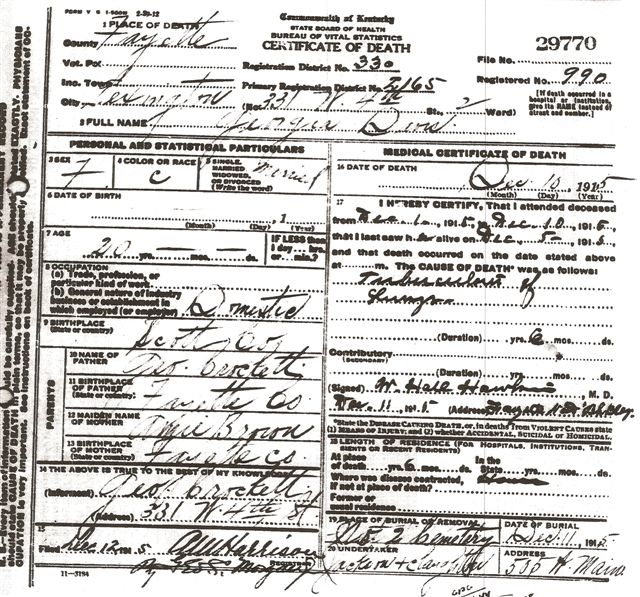 FORM V S 1-500M 2-29-12
Commonwealth of Kentucky
STATE BOARD OF HEALTH
BUREAU OF VITAL STATISTICS
CERTIFICATE OF DEATH
1 PLACE OF DEATH
County Fayette
Vot. Pct.
Inc. Town
City Lexington
Registration District No. 330
Primary Registration District No. 2165
(No. 331 W. 4th St., Ward)
File No. 29770
Registered No. 990
[If death occurred in a hospital or institution, give its NAME instead of street and number.]
2 FULL NAME Georgia
PERSONAL AND STATISTICAL PARTICULARS
3 SEX F.
4 COLOR OR RACE C
5 SINGLE, MARRIED, WIDOWED, OR DIVORCED (Write the word) Married
6 DATE OF BIRTH
(Month) (Day) (Year)
, 1
7 AGE
20 yrs. — mos. — ds.
IF LESS than 1 day ... hrs. or ... min.?
8 OCCUPATION
(a) Trade, profession, or particular kind of work
(b) General nature of industry business or establishment in which employed (or employer) Domestic
9 BIRTHPLACE (State or country) Scott Co
PARENTS
10 NAME OF FATHER Geo. Crockett
11 BIRTHPLACE OF FATHER (State or country) Fayette Co
12 MAIDEN NAME OF MOTHER Brown
13 BIRTHPLACE OF MOTHER (State or country) Fayette Co.
14 THE ABOVE IS TRUE TO THE BEST OF MY KNOWLEDGE
(Informant) Geo. Crockett
(Address) 331 W. 4th St
15
Filed Dec 12 1915 Harrison
REGISTRAR
11—3184
MEDICAL CERTIFICATE OF DEATH
16 DATE OF DEATH
Dec 10, 1915
(Month) (Day) (Year)
17 I HEREBY CERTIFY, That I attended deceased
from Dec 1, 1915, to Dec 10 1915
that I last saw her alive on Dec 5 1915
and that death occurred on the date stated above
at m. The CAUSE OF DEATH* was as follows:
Tuberculosis of
Lungs
(Duration) yrs. 6 mos. ds.
Contributory
(SECONDARY)
(Duration) yrs. mos. ds.
(Signed) W. Hall Hawkins, M. D.
Dec. 11, 1915 (Address)
*State the DISEASE CAUSING DEATH, or, in deaths from VIOLENT CAUSES state (1) MEANS OF INJURY; and (2) whether ACCIDENTAL, SUICIDAL or HOMICIDAL.
18 LENGTH OF RESIDENCE (FOR HOSPITALS, INSTITUTIONS, TRANSIENTS OR RECENT RESIDENTS)
At place of death yrs. 6 mos. ds. In the State yrs. mos. ds.
Where was disease contracted, if not at place of death? Home
Former or usual residence
19 PLACE OF BURIAL OR REMOVAL
No 2 Cemetery
DATE OF BURIAL
Dec 11, 1915
20 UNDERTAKER
Jackson +
ADDRESS
505 W. Main